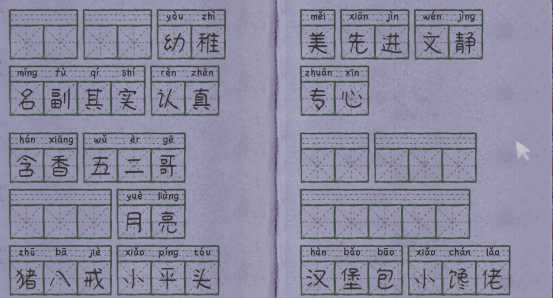 yòu zhì
幼稚
míng fù qí shí rèn zhēn
名副其实 认真
hán xiāng wǔ èr gē
含香 五二哥
yuè liàng
月亮
zhū bā jiè xiǎo píng tóu
猪八戒 小平头
měi xiān jìn wén jìng
美 先进 文静
zhuān xīn
专心
hàn bǎo bāo xiǎo chán lǎo
汉堡包 小馋佬